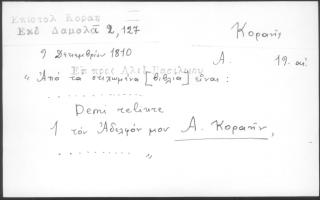 Επιστολ Κοραη
Εκδ Δαμαλᾶ 2,127
Κοραής
9 Δεκεμβρίου 1810
Α. 19. αἰ
Επ προς Αλεξ Βασιλειου
" Ἀπό τα στιχωμένα [βιβλία] εἶναι :
..........
Demi reliure
1 τόν Ἀδελφόν μου Α. Κοραήν,
.......... "